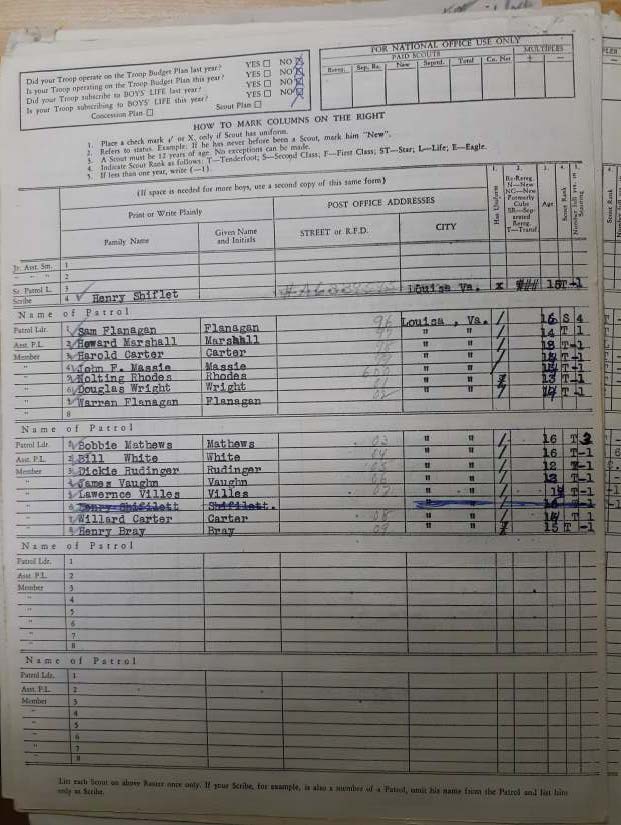 Did your Troop operate on the Troop Budget Plan last year? YES NO
Is your Troop operating on the Troop Budget Plan this year? YES NO
Did your Troop subscribe to BOYS' LIFE last year? YES NO
Is your Troop subscribing to BOYS' LIFE this year? YES NO
Concession Plan Scout Plan
FOR NATIONAL OFFICE USE ONLY
PAID SCOUTS MULTIPLES
Rereg. Sep. Re. New Septed. Total Co. Net + —
HOW TO MARK COLUMNS ON THE RIGHT
1. Place a check mark √ or X, only if Scout has uniform.
2. Refers to status. Example: If he has never before been a Scout, mark him "New".
3. A Scout must be 12 years of age. No exceptions can be made.
4. Indicate Scout Rank as follows: T—Tenderfoot; S—Second Class; F—First Class; ST—Star; L—Life; E—Eagle.
5. If less than one year, write (—1).
(If space is needed for more boys, use a second copy of this same form)
Print or Write Plainly
POST OFFICE ADDRESSES
Family Name
Given Name and Initials
STREET or R.F.D.
CITY
1. Has Uniform
2. Re-Rereg. N—New NC—New Formerly Cubs SR—Separated Rereg. T—Transf.
3. Age
4. Scout Rank
5. Number full yrs. in Scouting
Jr. Asst. Sm. 1
" " " 2
Sr. Patrol L. 3
Scribe 4 Henry Shiflet Louisa Va. x 15 T-1
Name of Patrol
Patrol Ldr. 1 Sam Flanagan Flanagan 96 Louisa , Va. / 16 S 4
Asst. P.L. 2 Howard Marshall Marshall " " / 14 T 1
Member 3 Harold Carter Carter " " / T-1
" 4 John F. Massie Massie " " / T-1
" 5 Nolting Rhodes Rhodes 600 " " 13 T-1
" 6 Douglas Wright Wright " " T-1
" 7 Warren Flanagan Flanagan 02
" 8
Name of Patrol
Patrol Ldr. 1 Bobbie Mathews Mathews 03 " " / 16 T
Asst. P.L. 2 Bill White White 04 " " / 16 T-1
Member 3 Dickie Rudinger Rudinger 05 " " / 12 -1
" 4 James Vaughn Vaughn 06 " " / T-1
" 5 Lawernce Villes Villes 07 " " / T-1
" 6 Henry Shifilett Shifilett. " " / T-1
" 7 Willard Carter Carter 08 " " / T-1
" 8 Henry Bray Bray 09 " " 15 T -1
Name of Patrol
Patrol Ldr. 1
Asst. P.L. 2
Member 3
" 4
" 5
" 6
" 7
" 8
Name of Patrol
Patrol Ldr. 1
Asst. P.L. 2
Member 3
" 4
" 5
" 6
" 7
" 8
List each Scout on above Roster once only. If your Scribe, for example, is also a member of a Patrol, omit his name from the Patrol and list him
only as Scribe.